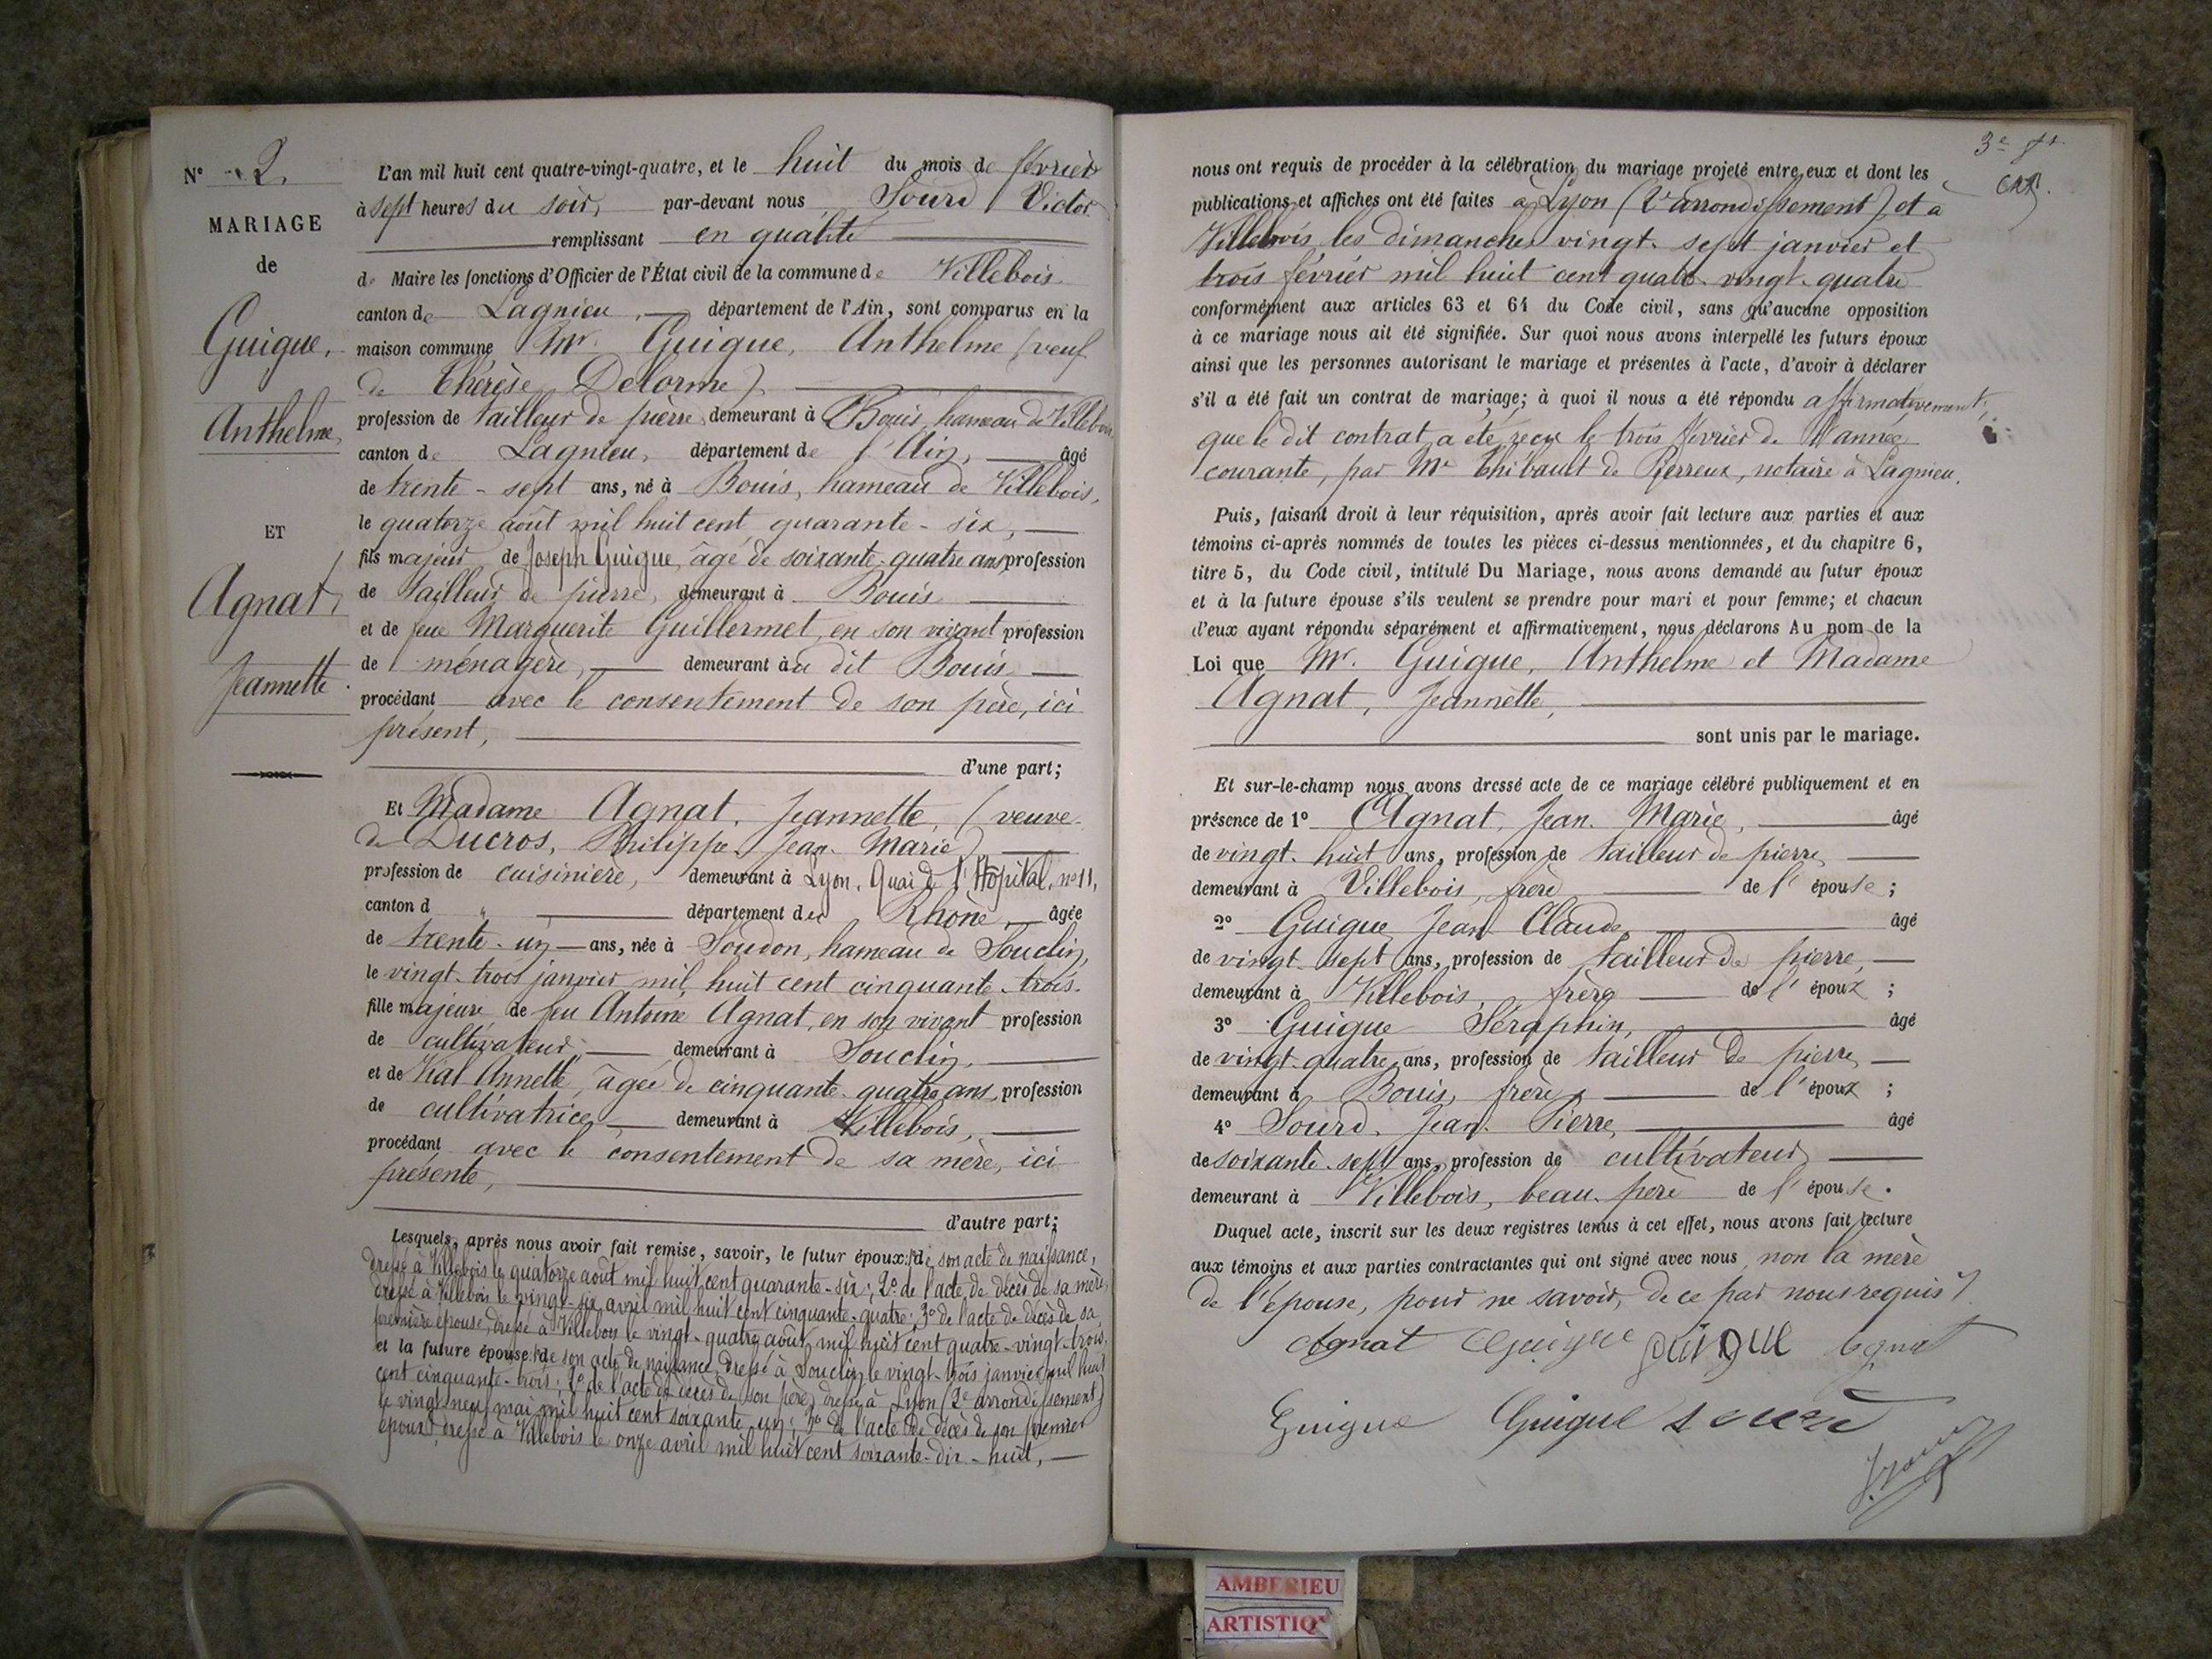 N° 2.
MARIAGE
de
Guigue,
Anthelme,
ET
Agnat,
Jeannette.
L'an mil huit cent quatre-vingt-quatre, et le huit du mois de février
à sept heures du soir, par-devant nous Sourd Victor
remplissant en qualité
de Maire les fonctions d'Officier de l'État civil de la commune de Villebois
canton de Lagnieu, département de l'Ain, sont comparus en la
maison commune Mr. Guigue, Anthelme (veuf
de Thérèse Delorme)
profession de tailleur de pierre demeurant à Bouis, hameau de Villebois
canton de Lagnieu, département de l'Ain, âgé
de trente-sept ans, né à Bouis, hameau de Villebois,
le quatorze août mil huit cent quarante-six,
fils majeur de Joseph Guigue, âgé de soixante-quatre ans, profession
de tailleur de pierre, demeurant à Bouis
et de feue Marguerite Guillermet, en son vivant profession
de ménagère, demeurant à au dit Bouis
procédant avec le consentement de son père, ici
présent,
d'une part;
Et Madame Agnat, Jeannette, (veuve
de Ducros, Philippe Jean-Marie)
profession de cuisinière, demeurant à Lyon, Quai de l'Hôpital, n° 11,
canton d " département du Rhône, âgée
de trente-un ans, née à Soudon, hameau de Souclin,
le vingt-trois janvier mil huit cent cinquante-trois.
fille majeure de feu Antoine Agnat, en son vivant profession
de cultivateur, demeurant à Souclin,
et de Vial Annette, âgée de cinquante-quatre ans, profession
de cultivatrice, demeurant à Villebois,
procédant avec le consentement de sa mère, ici
présente,
d'autre part;
Lesquels, après nous avoir fait remise, savoir, le futur époux: 1° de son acte de naissance,
dressé à Villebois le quatorze août mil huit cent quarante-six; 2° de l'acte de décès de sa mère,
dressé à Villebois le vingt-six avril mil huit cent cinquante-quatre; 3° de l'acte de décès de sa
première épouse, dressé à Villebois le vingt-quatre août mil huit cent quatre-vingt-trois,
et la future épouse: 1° de son acte de naissance, dressé à Souclin le vingt-trois janvier mil huit
cent cinquante-trois; 2° de l'acte de décès de son père, dressé à Lyon (2e arrondissement)
le vingt-neuf mai mil huit cent soixante-un; 3° de l'acte de décès de son premier
époux, dressé à Villebois le onze avril mil huit cent soixante-dix-huit,
3e
nous ont requis de procéder à la célébration du mariage projeté entre eux et dont les
publications et affiches ont été faites à Lyon (2e arrondissement) et à
Villebois, les dimanches vingt-sept janvier et
trois février mil huit cent quatre-vingt-quatre
conformément aux articles 63 et 64 du Code civil, sans qu'aucune opposition
à ce mariage nous ait été signifiée. Sur quoi nous avons interpellé les futurs époux
ainsi que les personnes autorisant le mariage et présentes à l'acte, d'avoir à déclarer
s'il a été fait un contrat de mariage; à quoi il nous a été répondu affirmativement,
que le dit contrat a été reçu le trois février de l'année
courante, par Me Thibault de Pierreux, notaire à Lagnieu.
Puis, faisant droit à leur réquisition, après avoir fait lecture aux parties et aux
témoins ci-après nommés de toutes les pièces ci-dessus mentionnées, et du chapitre 6,
titre 5, du Code civil, intitulé Du Mariage, nous avons demandé au futur époux
et à la future épouse s'ils veulent se prendre pour mari et pour femme; et chacun
d'eux ayant répondu séparément et affirmativement, nous déclarons Au nom de la
Loi que Mr. Guigue, Anthelme et Madame
Agnat, Jeannette,
sont unis par le mariage.
Et sur-le-champ nous avons dressé acte de ce mariage célébré publiquement et en
présence de 1° Agnat, Jean-Marie, âgé
de vingt-huit ans, profession de tailleur de pierre,
demeurant à Villebois, frère de l'épouse;
2° Guigue Jean Claude, âgé
de vingt-sept ans, profession de tailleur de pierre,
demeurant à Villebois, frère de l'époux;
3° Guigue Séraphin, âgé
de vingt-quatre ans, profession de tailleur de pierre
demeurant à Bouis, frère de l'époux;
4° Sourd, Jean-Pierre, âgé
de soixante-sept ans, profession de cultivateur,
demeurant à Villebois, beau-père de l'épouse.
Duquel acte, inscrit sur les deux registres tenus à cet effet, nous avons fait lecture
aux témoins et aux parties contractantes qui ont signé avec nous, non la mère
de l'épouse, pour ne savoir, de ce par nous requis.
Agnat Guigue guigue agnat
Guigue Guigue sourd
AMBERIEU
ARTISTIQ